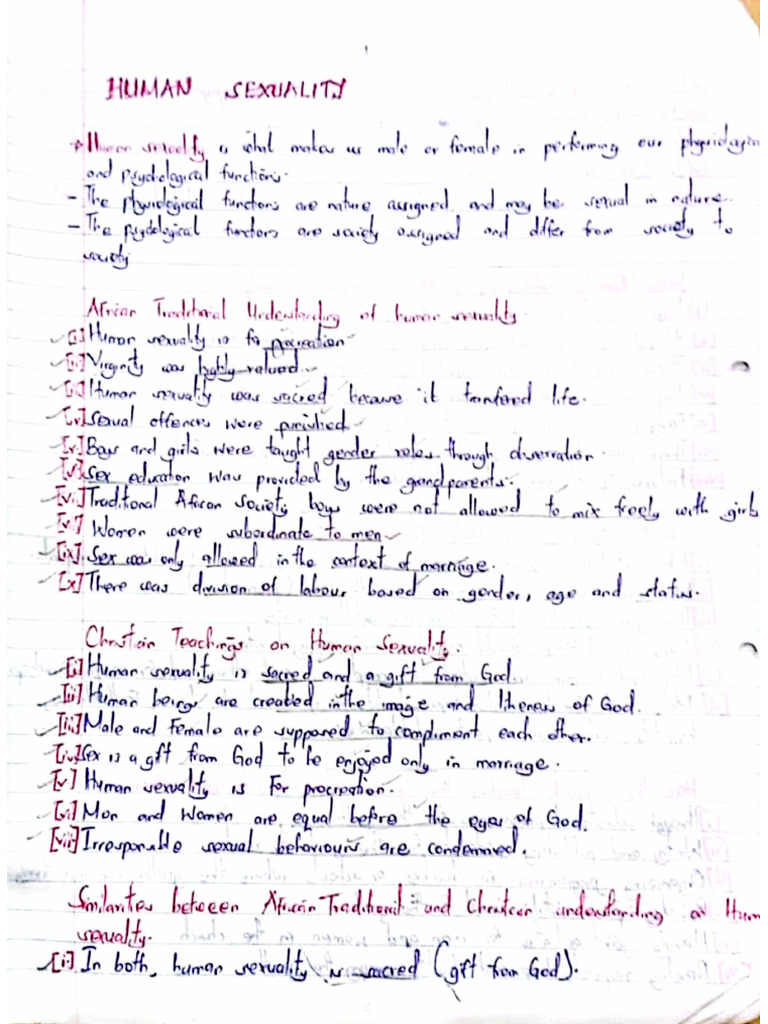 HUMAN SEXUALITY
* Human sexuality is what makes us male or female in performing our
and psychological functions.
- The physiological functions are nature assigned and may be sexual in nature.
- The psychological functions are society assigned and differ from society to
society
African Traditional Understanding of human sexuality.
[i] Human sexuality is for procreation
[ii] Virginity was highly valued.
[iii] Human sexuality was sacred because it transfered life.
[iv] Sexual offences were punished
[v] Boys and girls were taught gender roles through observation.
[vi] Sex education was provided by the grandparents.
[vii] Traditional African Society boys were not allowed to mix freely with girls
Women were subordinate to men
[ix] Sex was only allowed in the context of marriage.
[x] There was division of labour based on gender, age and status.
Christian Teachings on Human Sexuality.
[i] Human sexuality is sacred and a gift from God.
[ii] Human beings are created in the image and likeness of God.
[iii] Male and Female are supposed to compliment each other.
[iv] Sex is a gift from God to be enjoyed only in marriage.
[v] Human sexuality is For procreation.
[vi] Men and Women are equal before the eyes of God.
[vii] Irresponsible sexual behaviours are condemned.
Similarities between African Traditional and Christian understanding on Human
sexuality.
[i] In both, human sexuality is sacred (gift from God).